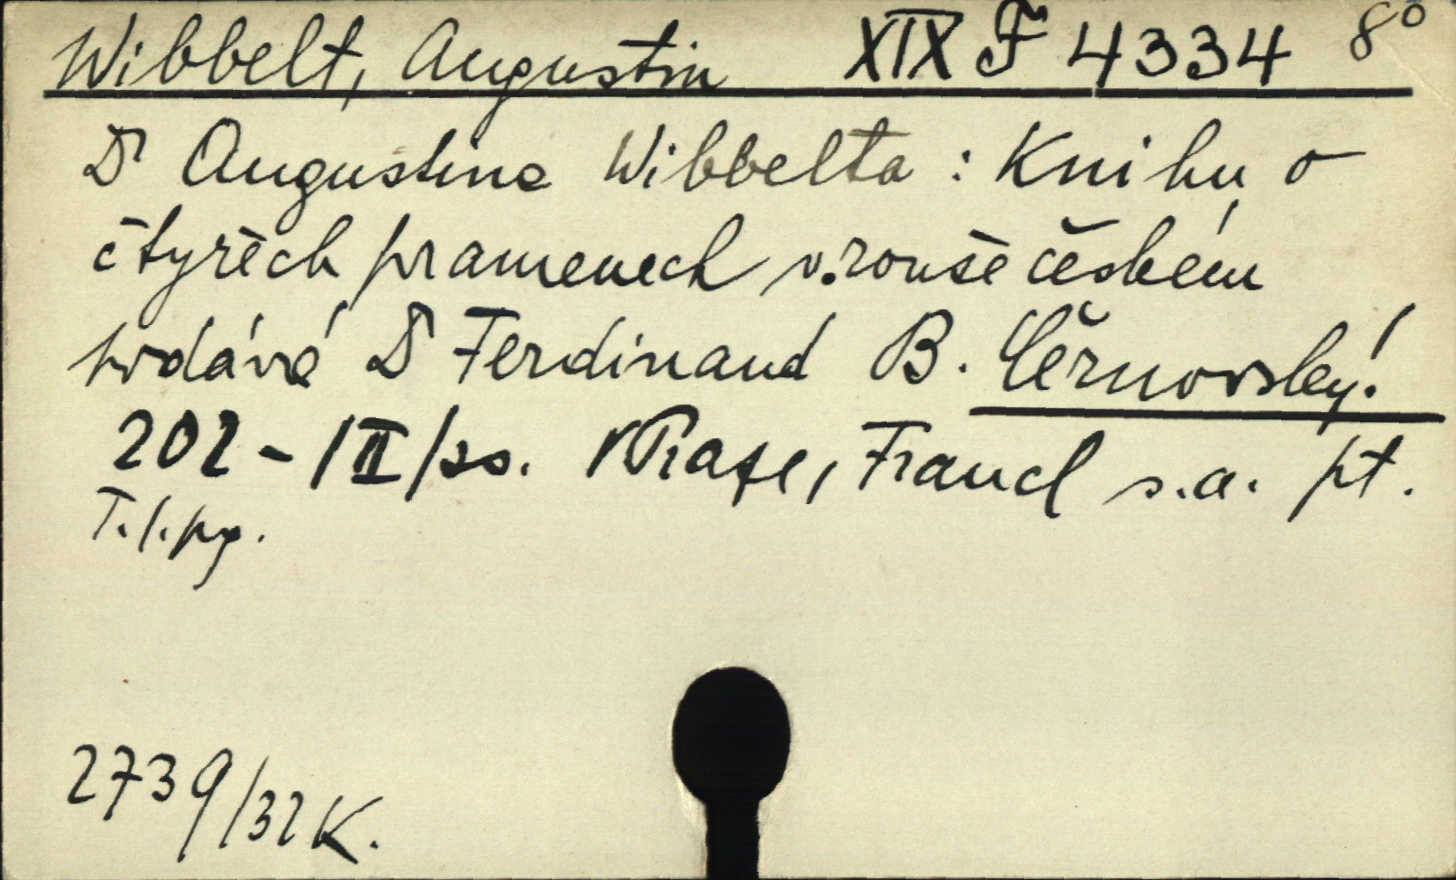 Wibbelt, Augustin XIX F 4334 8°
Dr Augustina Wibbelta: Knihu o
čtyřech pramenech v rouše českém
podává Dr Ferdinand B. Černovský.
202 - /II/ss. V Praze, Francl s.a. pt.
T.l.pg.
2739/32 K.